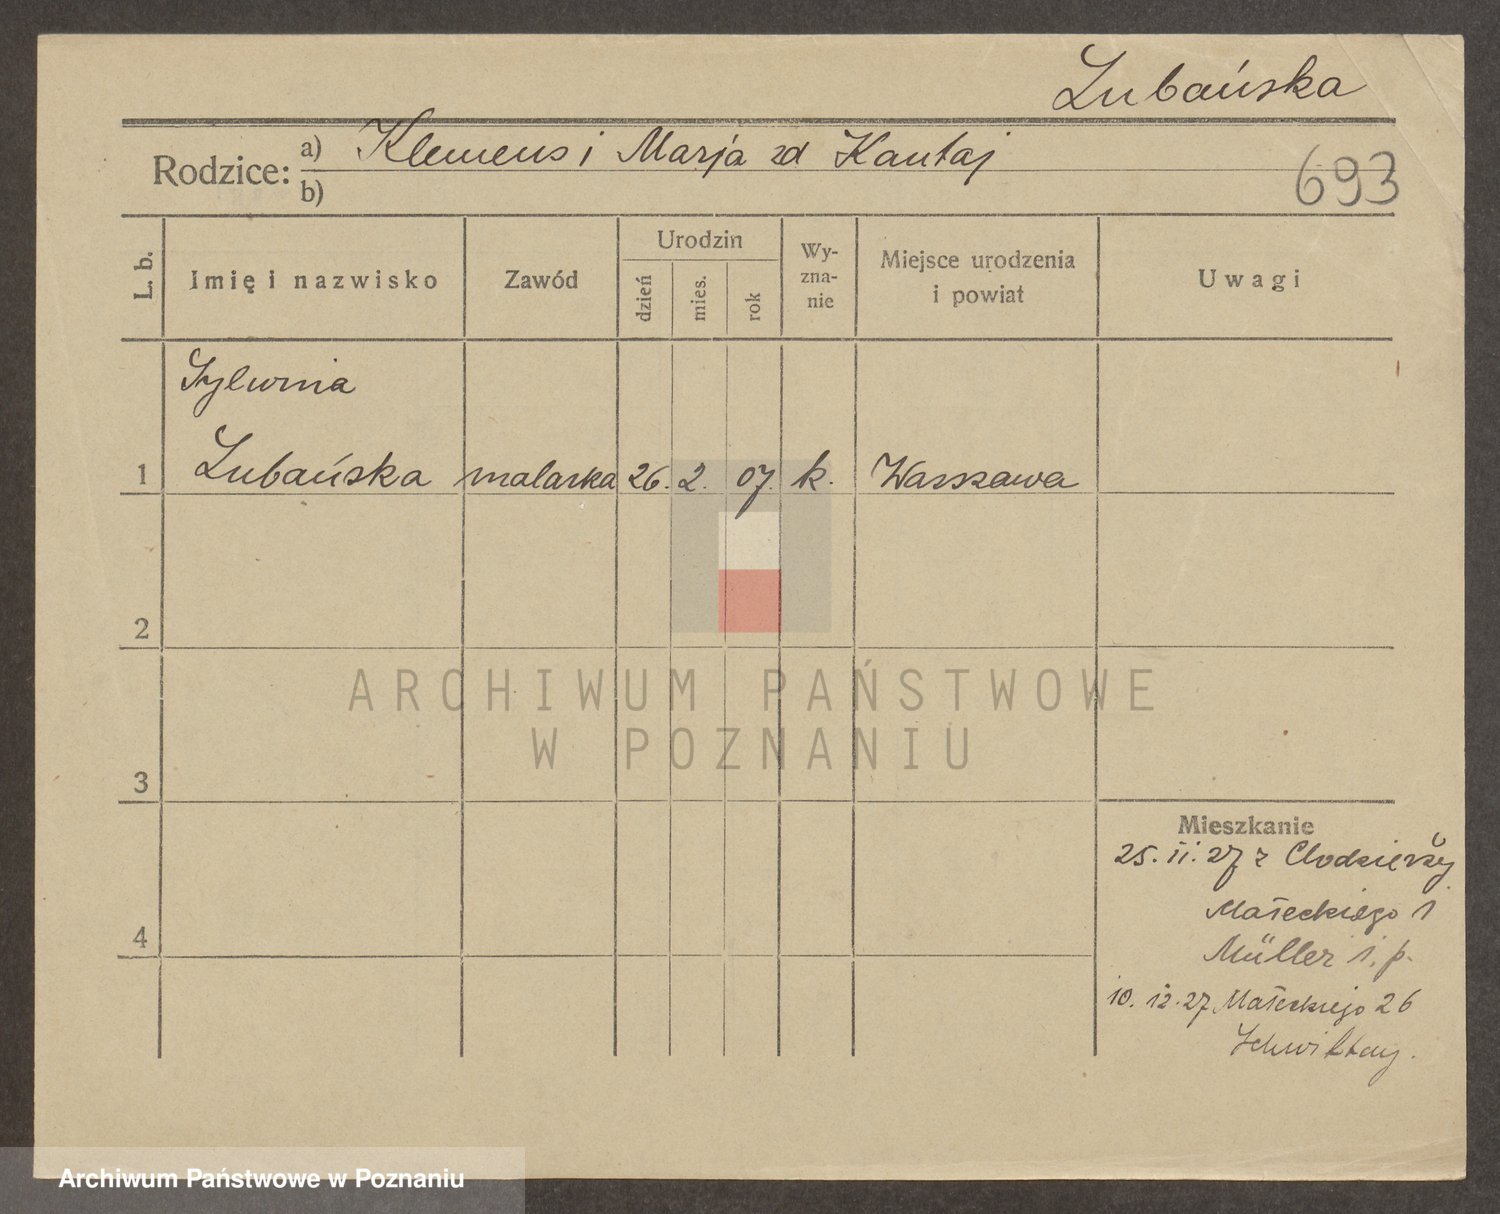 Lubańska
Rodzice: a) Klemens i Marja zd Kantaj
b)
693
L. b.
Imię i nazwisko
Zawód
Urodzin
dzień
mies.
rok
Wy-
zna-
nie
Miejsce urodzenia
i powiat
Uwagi
Sylwina
1 Lubańska malarka 26. 2. 07. k. Warszawa
2
3
4
ARCHIWUM PAŃSTWOWE
W POZNANIU
Mieszkanie
25. II. 27 z
Małeckiego 1
Müller 1. p.
10. 12. 27 Małeckiego 26
Archiwum Państwowe w Poznaniu